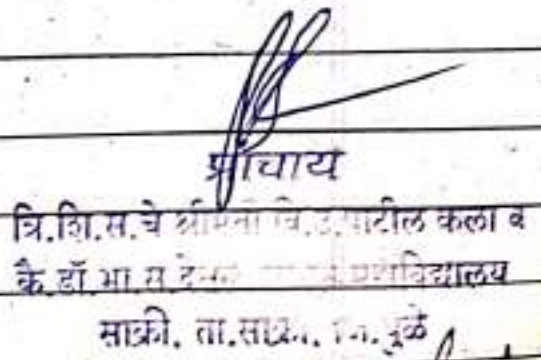 प्राचार्य
त्रि.शि.स.चे श्रीमती वि.उ.पाटील कला व
कै.डॉ.भा.स. महाविद्यालय
साक्री, ता.साक्री, जि.धुळे